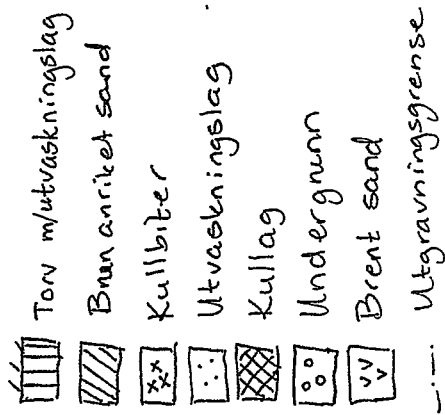 Torv m/utvaskningslag
Brun anriket sand
Kullbiter
Utvaskningslag
Kullag
Undergrunn
Brent sand
Utgravningsgrense